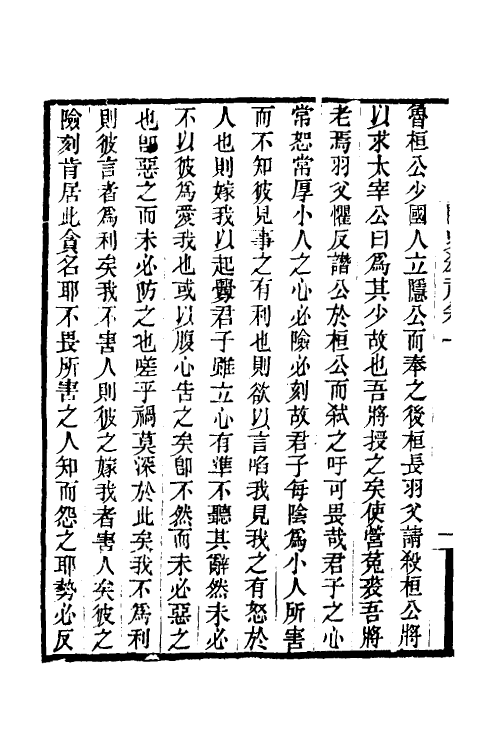 魯桓公少國人立隱公而奉之後桓長羽父請殺桓公將
以求太宰公曰爲其少故也吾將授之矣使營菟裘吾將
老焉羽父懼反譖公於桓公而弒之吁可畏哉君子之心
常恕常厚小人之心必險必刻故君子每陰爲小人所害
而不知彼見事之有利也則欲以言啗我見我之有怒於
人也則嫁我以起釁君子雖立心有準不聽其辭然未必
不以彼爲愛我也或以腹心告之矣卽不然而未必惡之
也卽惡之而未必防之也嗟乎禍莫深於此矣我不爲利
則彼言者爲利矣我不害人則彼之嫁我者害人矣彼之
險刻肯居此貪名耶不畏所害之人知而怨之耶勢必反